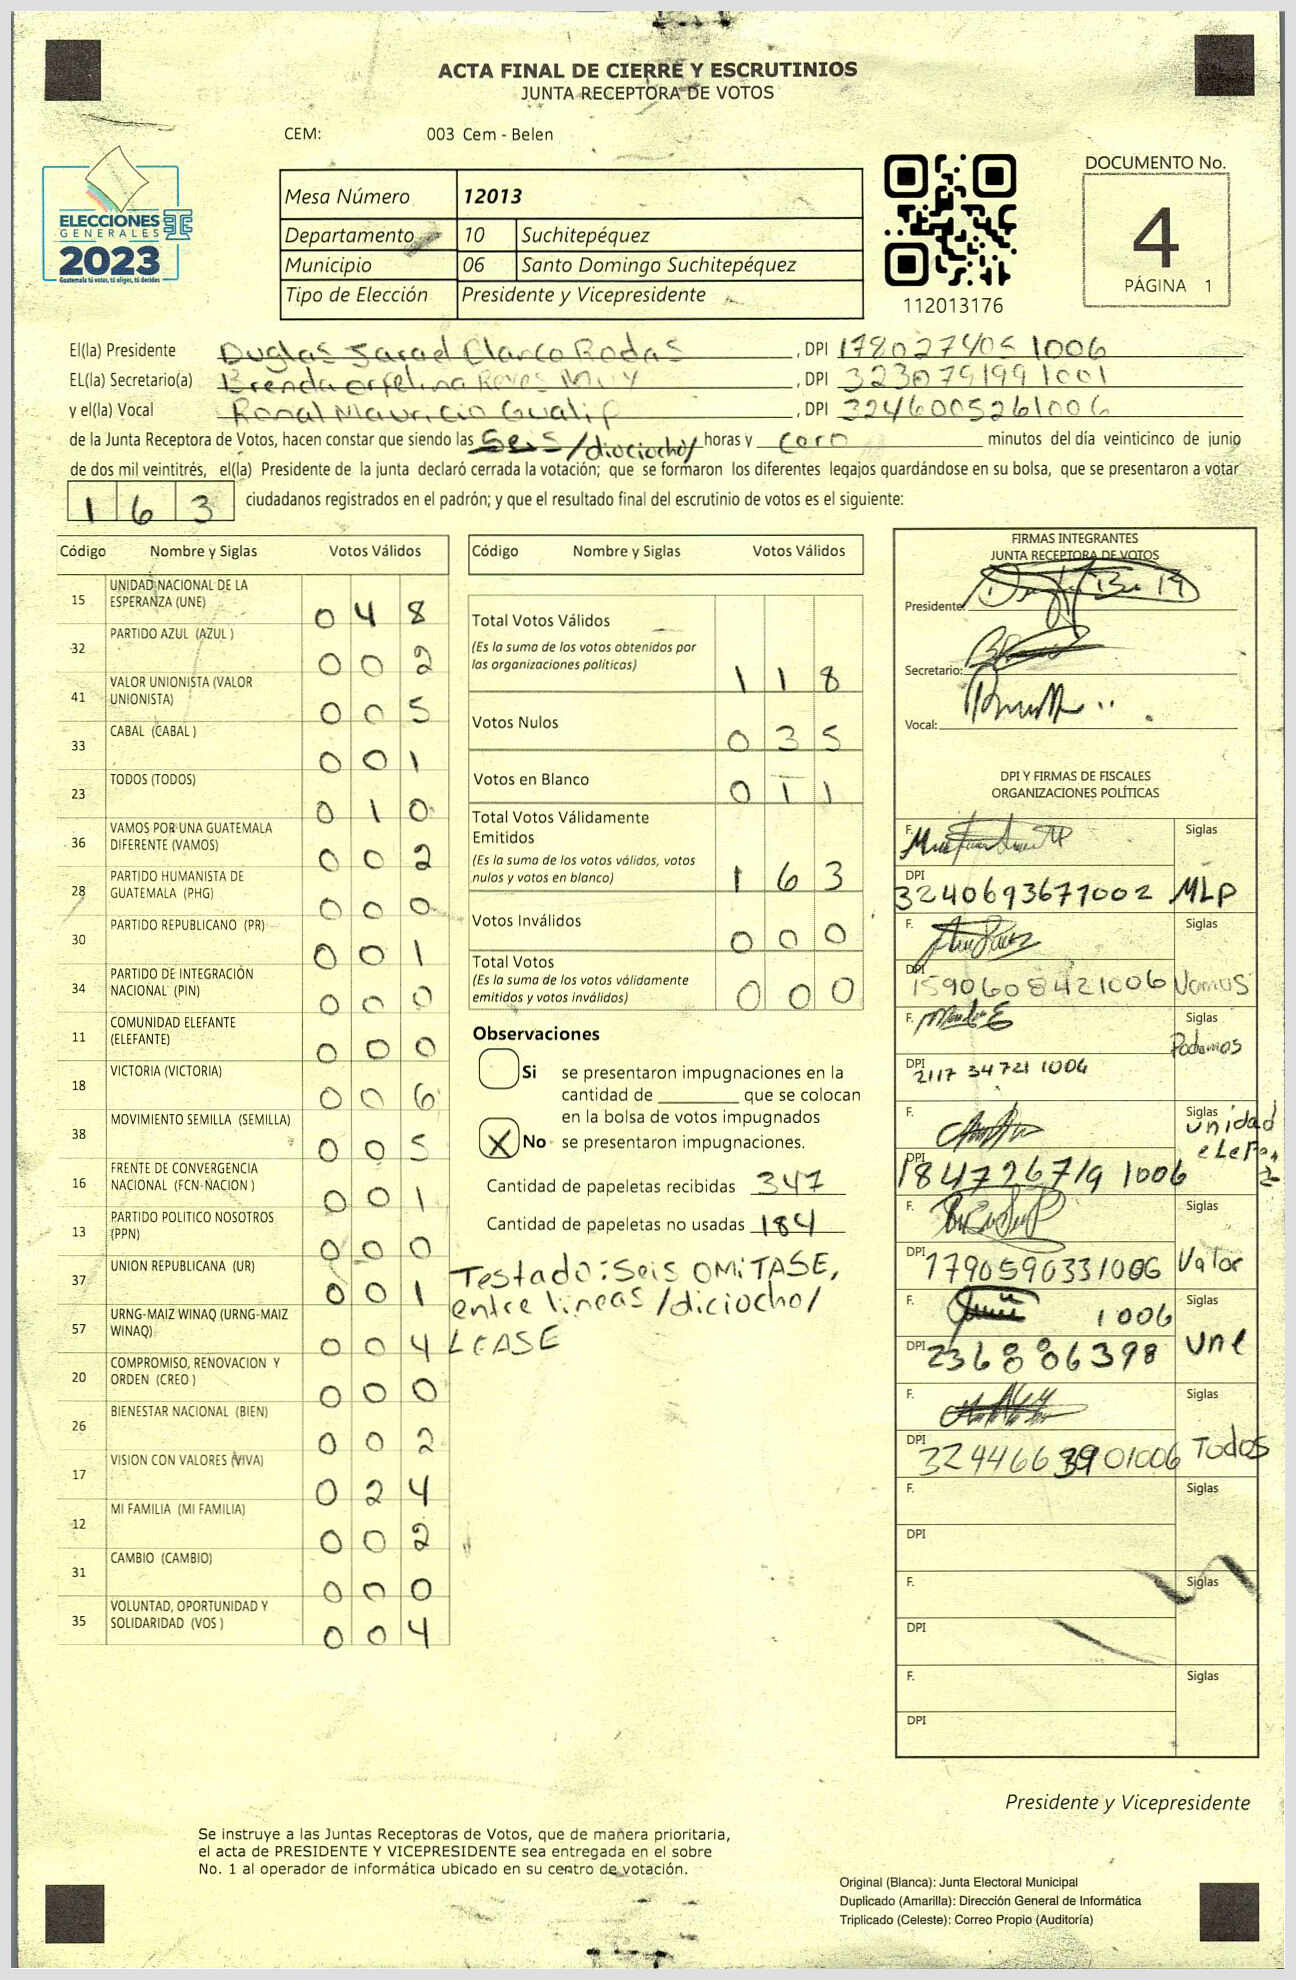 ACTA FINAL DE CIERRE Y ESCRUTINIOS
JUNTA RECEPTORA DE VOTOS
CEM: 003 Cem - Belen
ELECCIONES
GENERALES
2023
Guatemala tú votas, tú eliges, tú decides
Mesa Número 12013
Departamento 10 Suchitepéquez
Municipio 06 Santo Domingo Suchitepéquez
Tipo de Elección Presidente y Vicepresidente
112013176
DOCUMENTO No.
4
PÁGINA 1
El(la) Presidente Duglas Rodas , DPI 1006
EL(la) Secretario(a) Brenda Reyes Muy , DPI 3230791991001
y el(la) Vocal Ronal Mauricio Gualip , DPI 3246005261006
de la Junta Receptora de Votos, hacen constar que siendo las Seis /diociocho/ horas y cero minutos del día veinticinco de junio
de dos mil veintitrés, el(la) Presidente de la junta declaró cerrada la votación; que se formaron los diferentes legajos guardándose en su bolsa, que se presentaron a votar
163 ciudadanos registrados en el padrón; y que el resultado final del escrutinio de votos es el siguiente:
Código Nombre y Siglas Votos Válidos
15 UNIDAD NACIONAL DE LA ESPERANZA (UNE) 048
32 PARTIDO AZUL (AZUL ) 002
41 VALOR UNIONISTA (VALOR UNIONISTA) 005
33 CABAL (CABAL ) 001
23 TODOS (TODOS) 010
36 VAMOS POR UNA GUATEMALA DIFERENTE (VAMOS) 002
28 PARTIDO HUMANISTA DE GUATEMALA (PHG) 000
30 PARTIDO REPUBLICANO (PR) 001
34 PARTIDO DE INTEGRACIÓN NACIONAL (PIN) 000
11 COMUNIDAD ELEFANTE (ELEFANTE) 000
18 VICTORIA (VICTORIA) 006
38 MOVIMIENTO SEMILLA (SEMILLA) 005
16 FRENTE DE CONVERGENCIA NACIONAL (FCN-NACION ) 001
13 PARTIDO POLITICO NOSOTROS (PPN) 000
37 UNION REPUBLICANA (UR) 001
57 URNG-MAIZ WINAQ (URNG-MAIZ WINAQ) 004
20 COMPROMISO, RENOVACION Y ORDEN (CREO ) 000
26 BIENESTAR NACIONAL (BIEN) 002
17 VISION CON VALORES (VIVA) 024
12 MI FAMILIA (MI FAMILIA) 002
31 CAMBIO (CAMBIO) 000
35 VOLUNTAD, OPORTUNIDAD Y SOLIDARIDAD (VOS ) 004
Código Nombre y Siglas Votos Válidos
Total Votos Válidos
(Es la suma de los votos obtenidos por
las organizaciones políticas) 118
Votos Nulos 035
Votos en Blanco 011
Total Votos Válidamente
Emitidos
(Es la suma de los votos válidos, votos
nulos y votos en blanco) 163
Votos Inválidos 000
Total Votos
(Es la suma de los votos válidamente
emitidos y votos inválidos) 000
Observaciones
Si se presentaron impugnaciones en la
cantidad de ________ que se colocan
en la bolsa de votos impugnados
X No se presentaron impugnaciones.
Cantidad de papeletas recibidas 347
Cantidad de papeletas no usadas 184
Testado: Seis OMITASE,
entre lineas /diciocho/
LEASE
FIRMAS INTEGRANTES
JUNTA RECEPTORA DE VOTOS
Presidente:
Secretario:
Vocal:
DPI Y FIRMAS DE FISCALES
ORGANIZACIONES POLÍTICAS
F. Siglas
DPI 3240693677002 MLP
F. Siglas
DPI 1590608421006 Vamos
F. Siglas
Podemos
DPI 2117 34721 1006
F. Siglas unidad
DPI 1847267191006
F. Siglas
DPI 1790590331006 Valor
F. 1006 Siglas
DPI une
F. Siglas
DPI Todos
F. Siglas
DPI
F. Siglas
DPI
F. Siglas
DPI
Presidente y Vicepresidente
Se instruye a las Juntas Receptoras de Votos, que de manera prioritaria,
el acta de PRESIDENTE Y VICEPRESIDENTE sea entregada en el sobre
No. 1 al operador de informática ubicado en su centro de votación.
Original (Blanca): Junta Electoral Municipal
Duplicado (Amarilla): Dirección General de Informática
Triplicado (Celeste): Correo Propio (Auditoría)